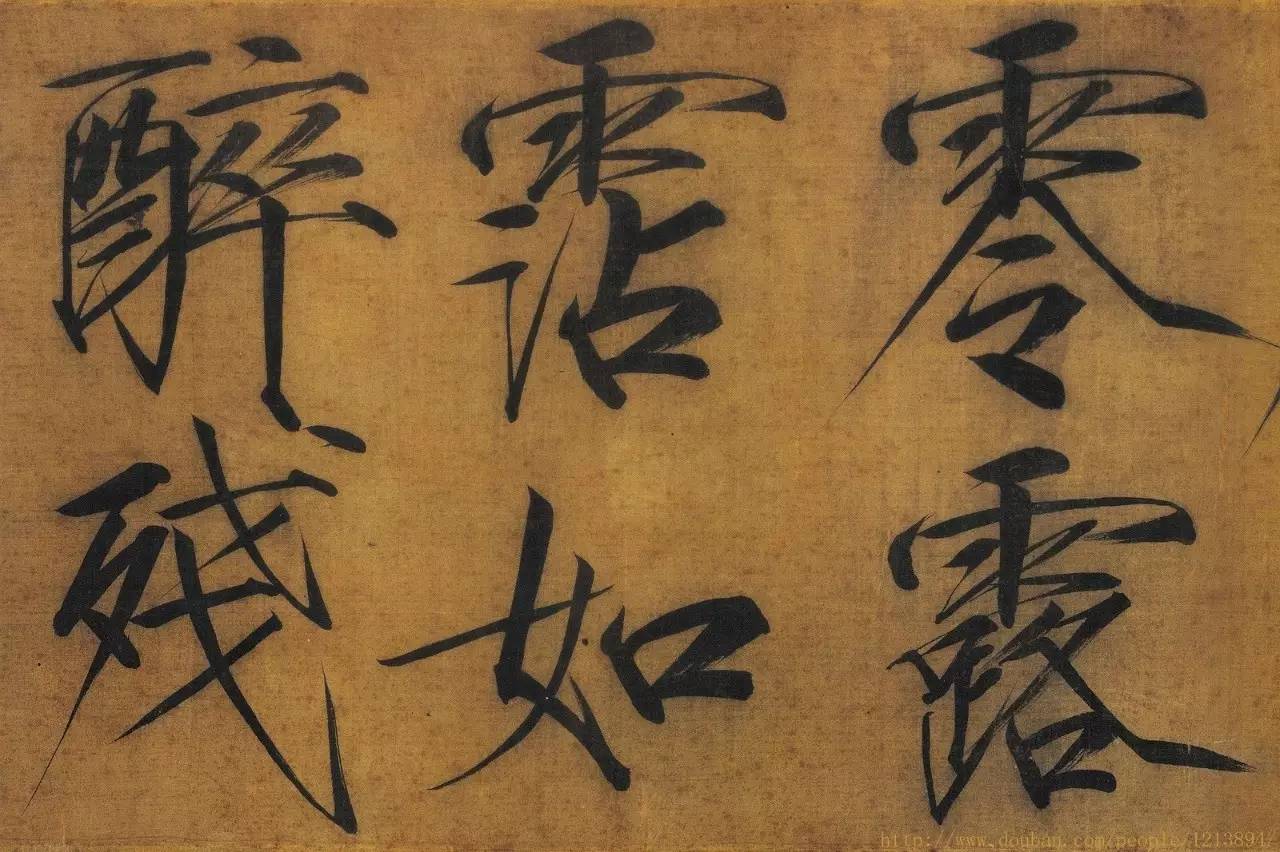 零露
霑如
醉殘
http://www.douban.com/people/1213894/